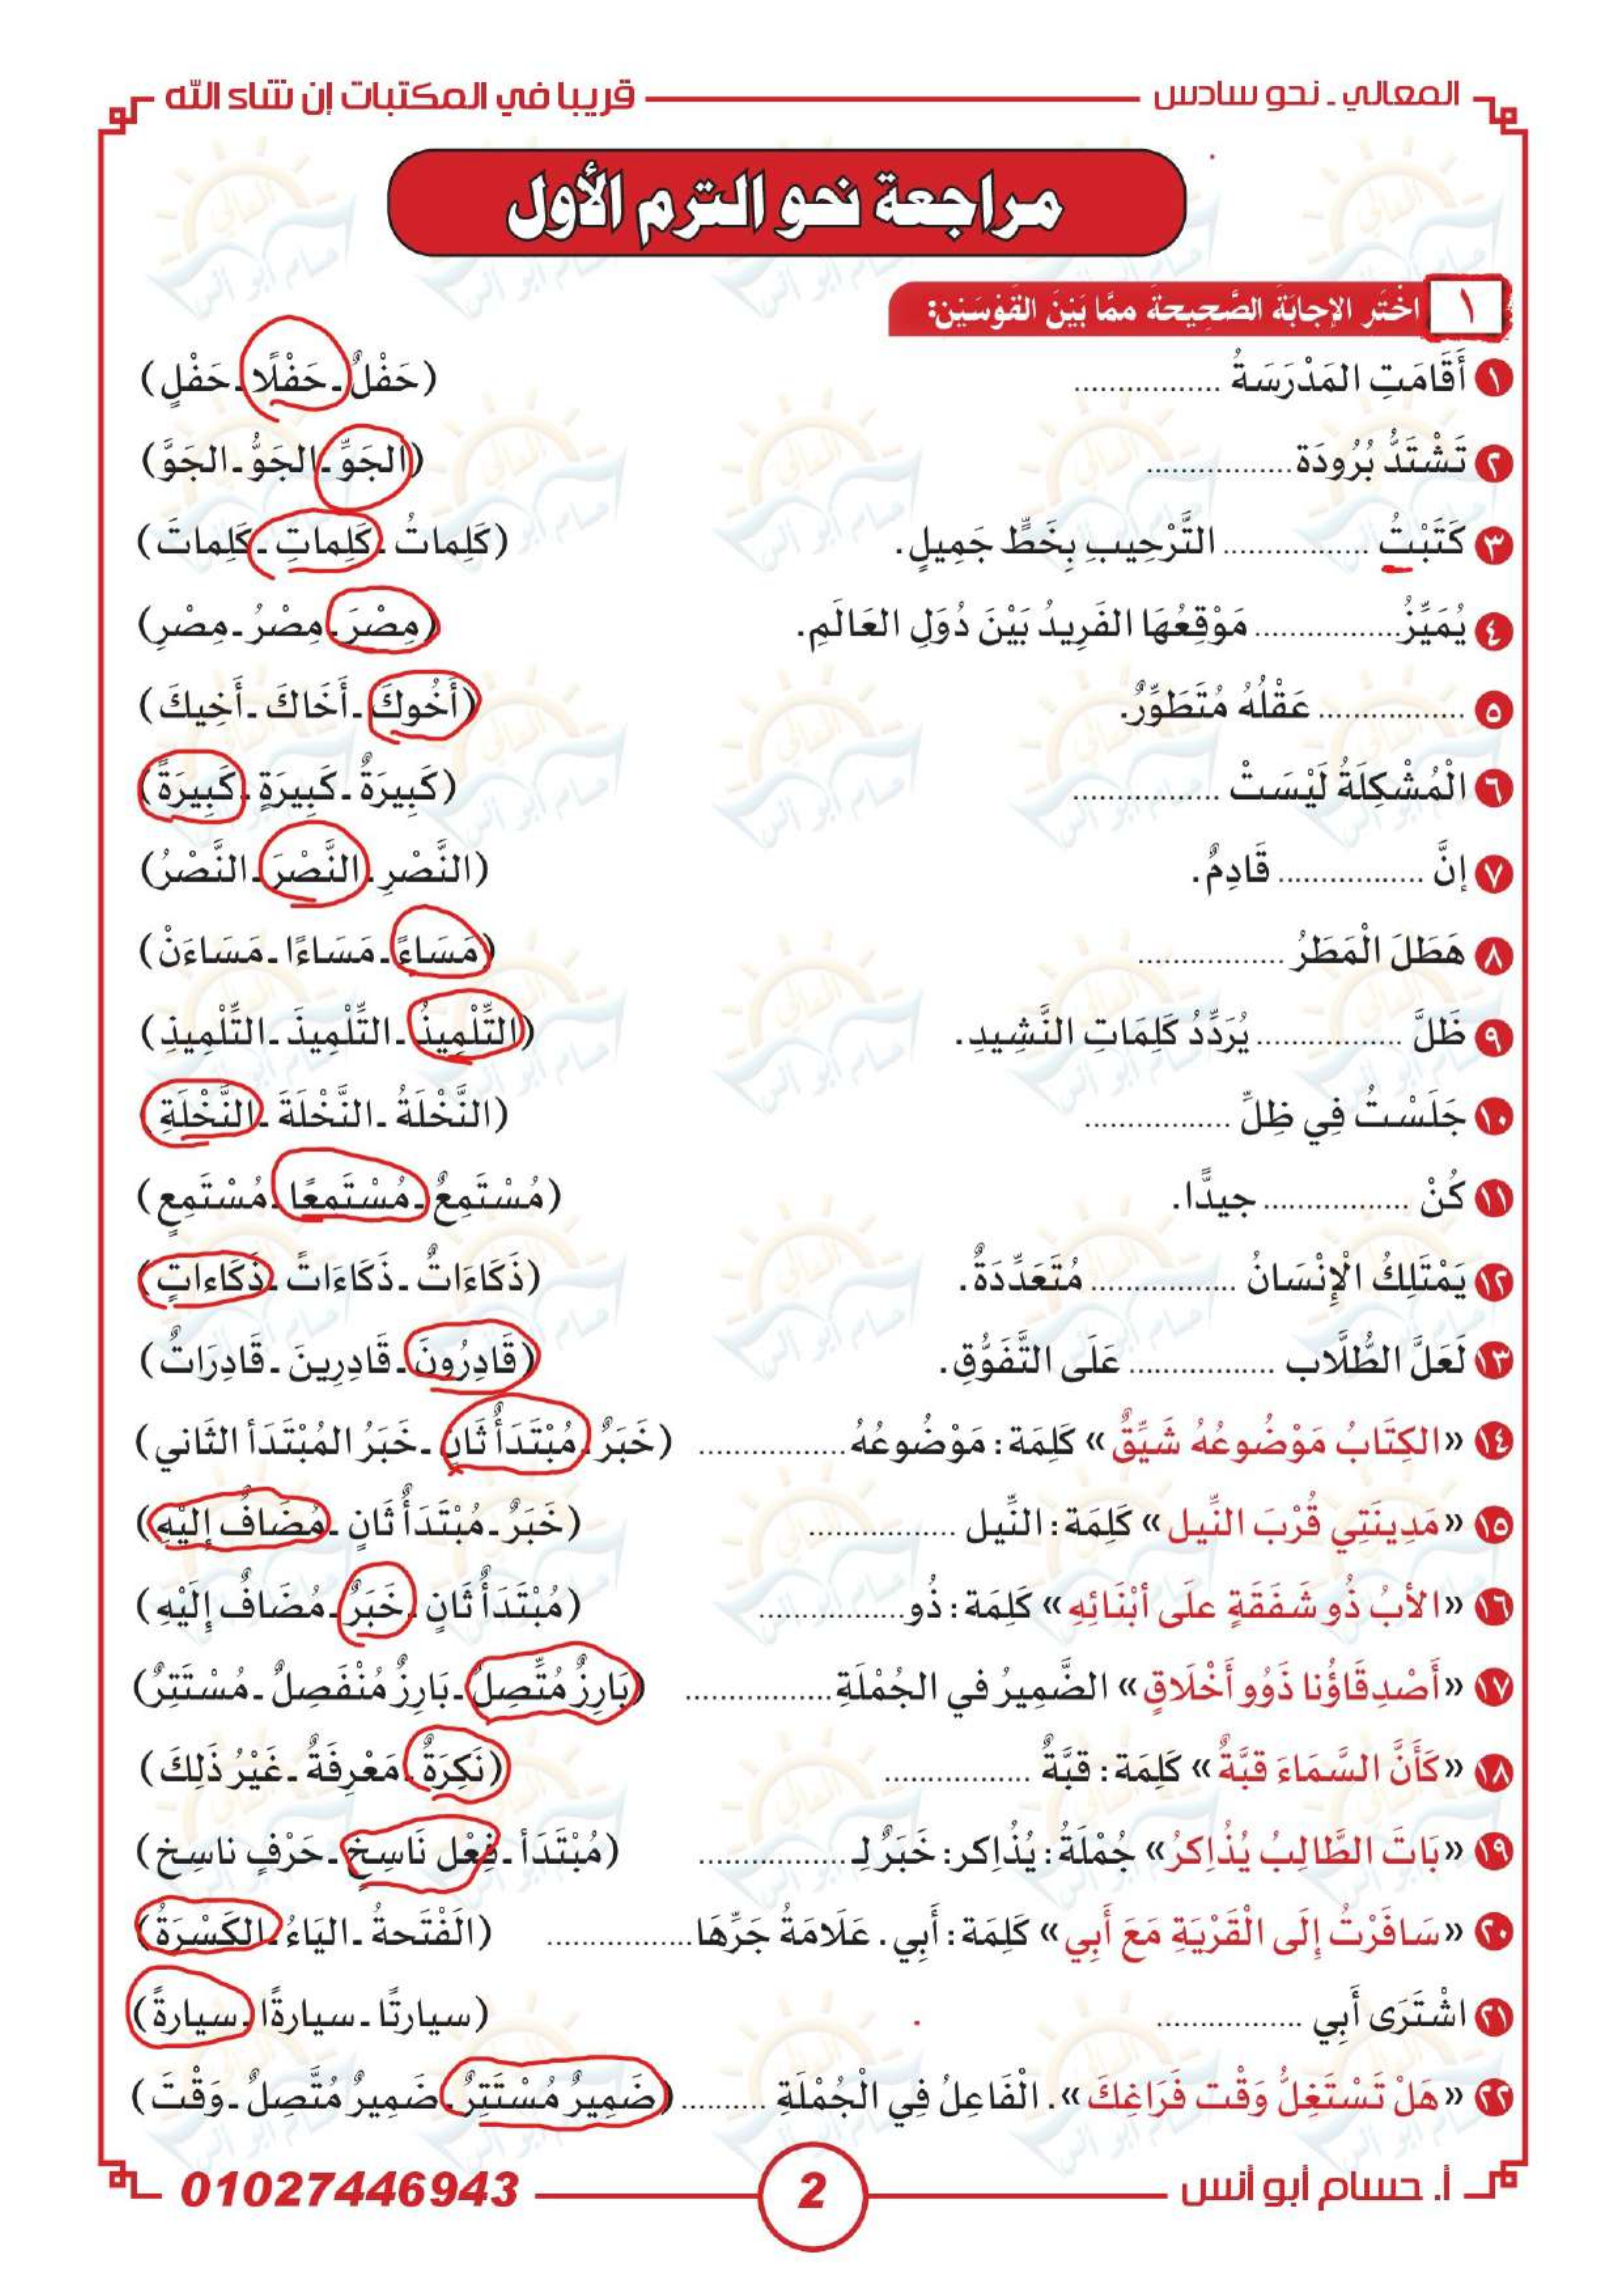 المعالي - نحو سادس
قريبا في المكتبات إن شاء الله
مراجعة نحو الترم الأول
١ اخْتَر الإجابَةَ الصَّحِيحةَ ممَّا بَيْنَ القَوْسَيْن:
١ أَقَامَتِ المَدْرَسَةُ ................. (حَفْلٌ - حَفْلًا - حَفْلٍ)
٢ تَشْتَدُّ بُرُودَة ................. (الجَوِّ - الجَوُّ - الجَوَّ)
٣ كَتَبْتُ ................. التَّرْحِيبِ بِخَطٍّ جَمِيلٍ. (كَلِماتُ - كَلِماتِ - كَلِماتَ)
٤ يُمَيِّزُ ................. مَوْقِعُهَا الفَرِيدُ بَيْنَ دُوَلِ العَالَمِ. (مِصْرَ - مِصْرُ - مِصْرِ)
٥ ................. عَقْلُهُ مُتَطَوِّرٌ. (أَخُوكَ - أَخَاكَ - أَخِيكَ)
٦ الْمُشْكِلَةُ لَيْسَتْ ................. (كَبِيرَةٌ - كَبِيرَةٍ - كَبِيرَةً)
٧ إنَّ ................. قَادِمٌ. (النَّصْرِ - النَّصْرَ - النَّصْرُ)
٨ هَطَلَ الْمَطَرُ ................. (مَسَاءً - مَسَاءًا - مَسَاءَنْ)
٩ ظَلَّ ................. يُرَدِّدُ كَلِمَاتِ النَّشِيدِ. (التِّلْمِيذُ - التِّلْمِيذَ - التِّلْمِيذِ)
١٠ جَلَسْتُ فِي ظِلِّ ................. (النَّخْلَةُ - النَّخْلَةَ - النَّخْلَةِ)
١١ كُنْ ................. جيدًّا. (مُسْتَمِعٌ - مُسْتَمِعًا - مُسْتَمِعٍ)
١٢ يَمْتَلِكُ الْإِنْسَانُ ................. مُتَعَدِّدَةٌ. (ذَكَاءَاتٌ - ذَكَاءَاتً - ذَكَاءاتٍ)
١٣ لَعَلَّ الطُّلَّاب ................. عَلَى التَّفَوُّقِ. (قَادِرُونَ - قَادِرِينَ - قَادِرَاتٌ)
١٤ «الكِتَابُ مَوْضُوعُهُ شَيِّقٌ» كَلِمَة: مَوْضُوعُهُ ................. (خَبَرٌ - مُبْتَدَأٌ ثَانٍ - خَبَرُ المُبْتَدَأ الثَّاني)
١٥ «مَدِينَتِي قُرْبَ النِّيل» كَلِمَة: النِّيل ................. (خَبَرٌ - مُبْتَدَأٌ ثَانٍ - مُضَافٌ إلَيْهِ)
١٦ «الأبُ ذُو شَفَقَةٍ علَى أبْنَائِهِ» كَلِمَة: ذُو ................. (مُبْتَدَأٌ ثَانٍ - خَبَرٌ - مُضَافٌ إلَيْهِ)
١٧ «أَصْدِقَاؤُنا ذَوُو أَخْلَاقٍ» الضَّمِيرُ في الجُمْلَةِ ................. (بَارِزٌ مُتَّصِلٌ - بَارِزٌ مُنْفَصِلٌ - مُسْتَتِرٌ)
١٨ «كَأَنَّ السَّمَاءَ قبَّةٌ» كَلِمَة: قبَّةٌ ................. (نَكِرَةٌ - مَعْرِفَةٌ - غَيْرُ ذَلِكَ)
١٩ «بَاتَ الطَّالِبُ يُذْاِكرُ» جُمْلَةُ: يُذْاِكر: خَبَرٌ لـ ................. (مُبْتَدَأ - فِعْل نَاسِخ - حَرْفٍ ناسِخ)
٢٠ «سَافَرْتُ إلَى الْقَرْيَةِ مَعَ أَبِي» كَلِمَة: أَبِي. عَلَامَةُ جَرِّهَا ................. (الَفْتَحةُ - اليَاءُ - الكَسْرَةُ)
٢١ اشْتَرَى أَبِي ................. (سيارتًا - سيارةًا - سيارةً)
٢٢ «هَلْ تَسْتَغِلُّ وَقْت فَرَاغِكَ». الْفَاعِلُ فِي الْجُمْلَةِ .......... (ضَمِيرٌ مُسْتَتِرٌ - ضَمِيرٌ مُتَّصِلٌ - وَقْتَ)
أ. حسام أبو أنس
2
01027446943